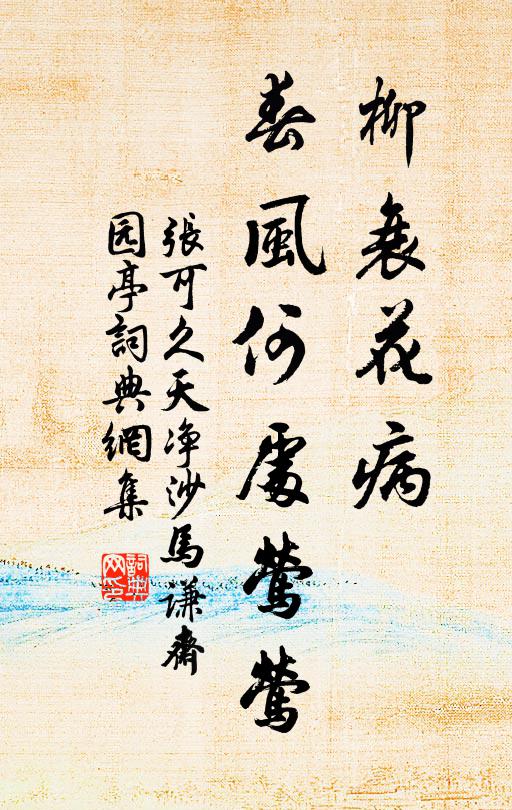 柳衰花病
春風何處鶯鶯
張可久天净沙馬謙齋
园亭詞典網集
詞典